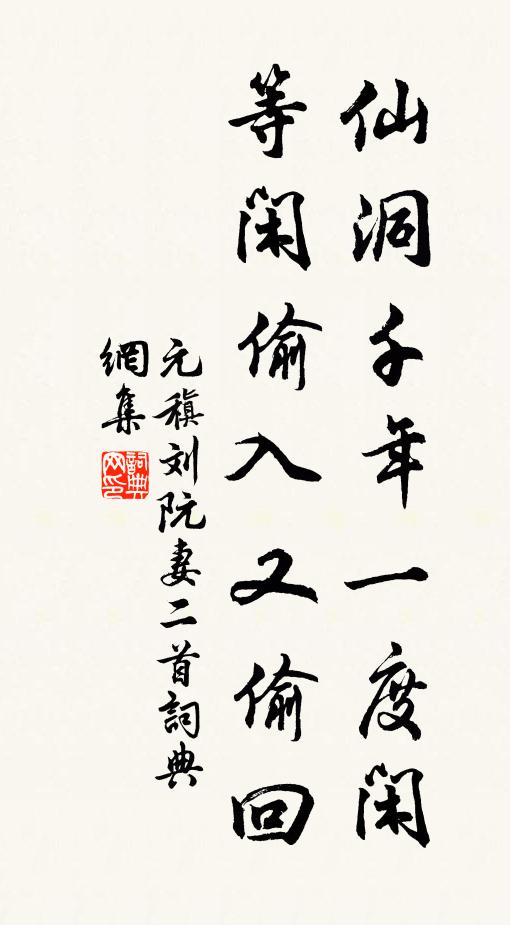 仙洞千年一度闲
等闲偷入又偷回
元稹刘阮妻二首詞典
網集
詞典
网印